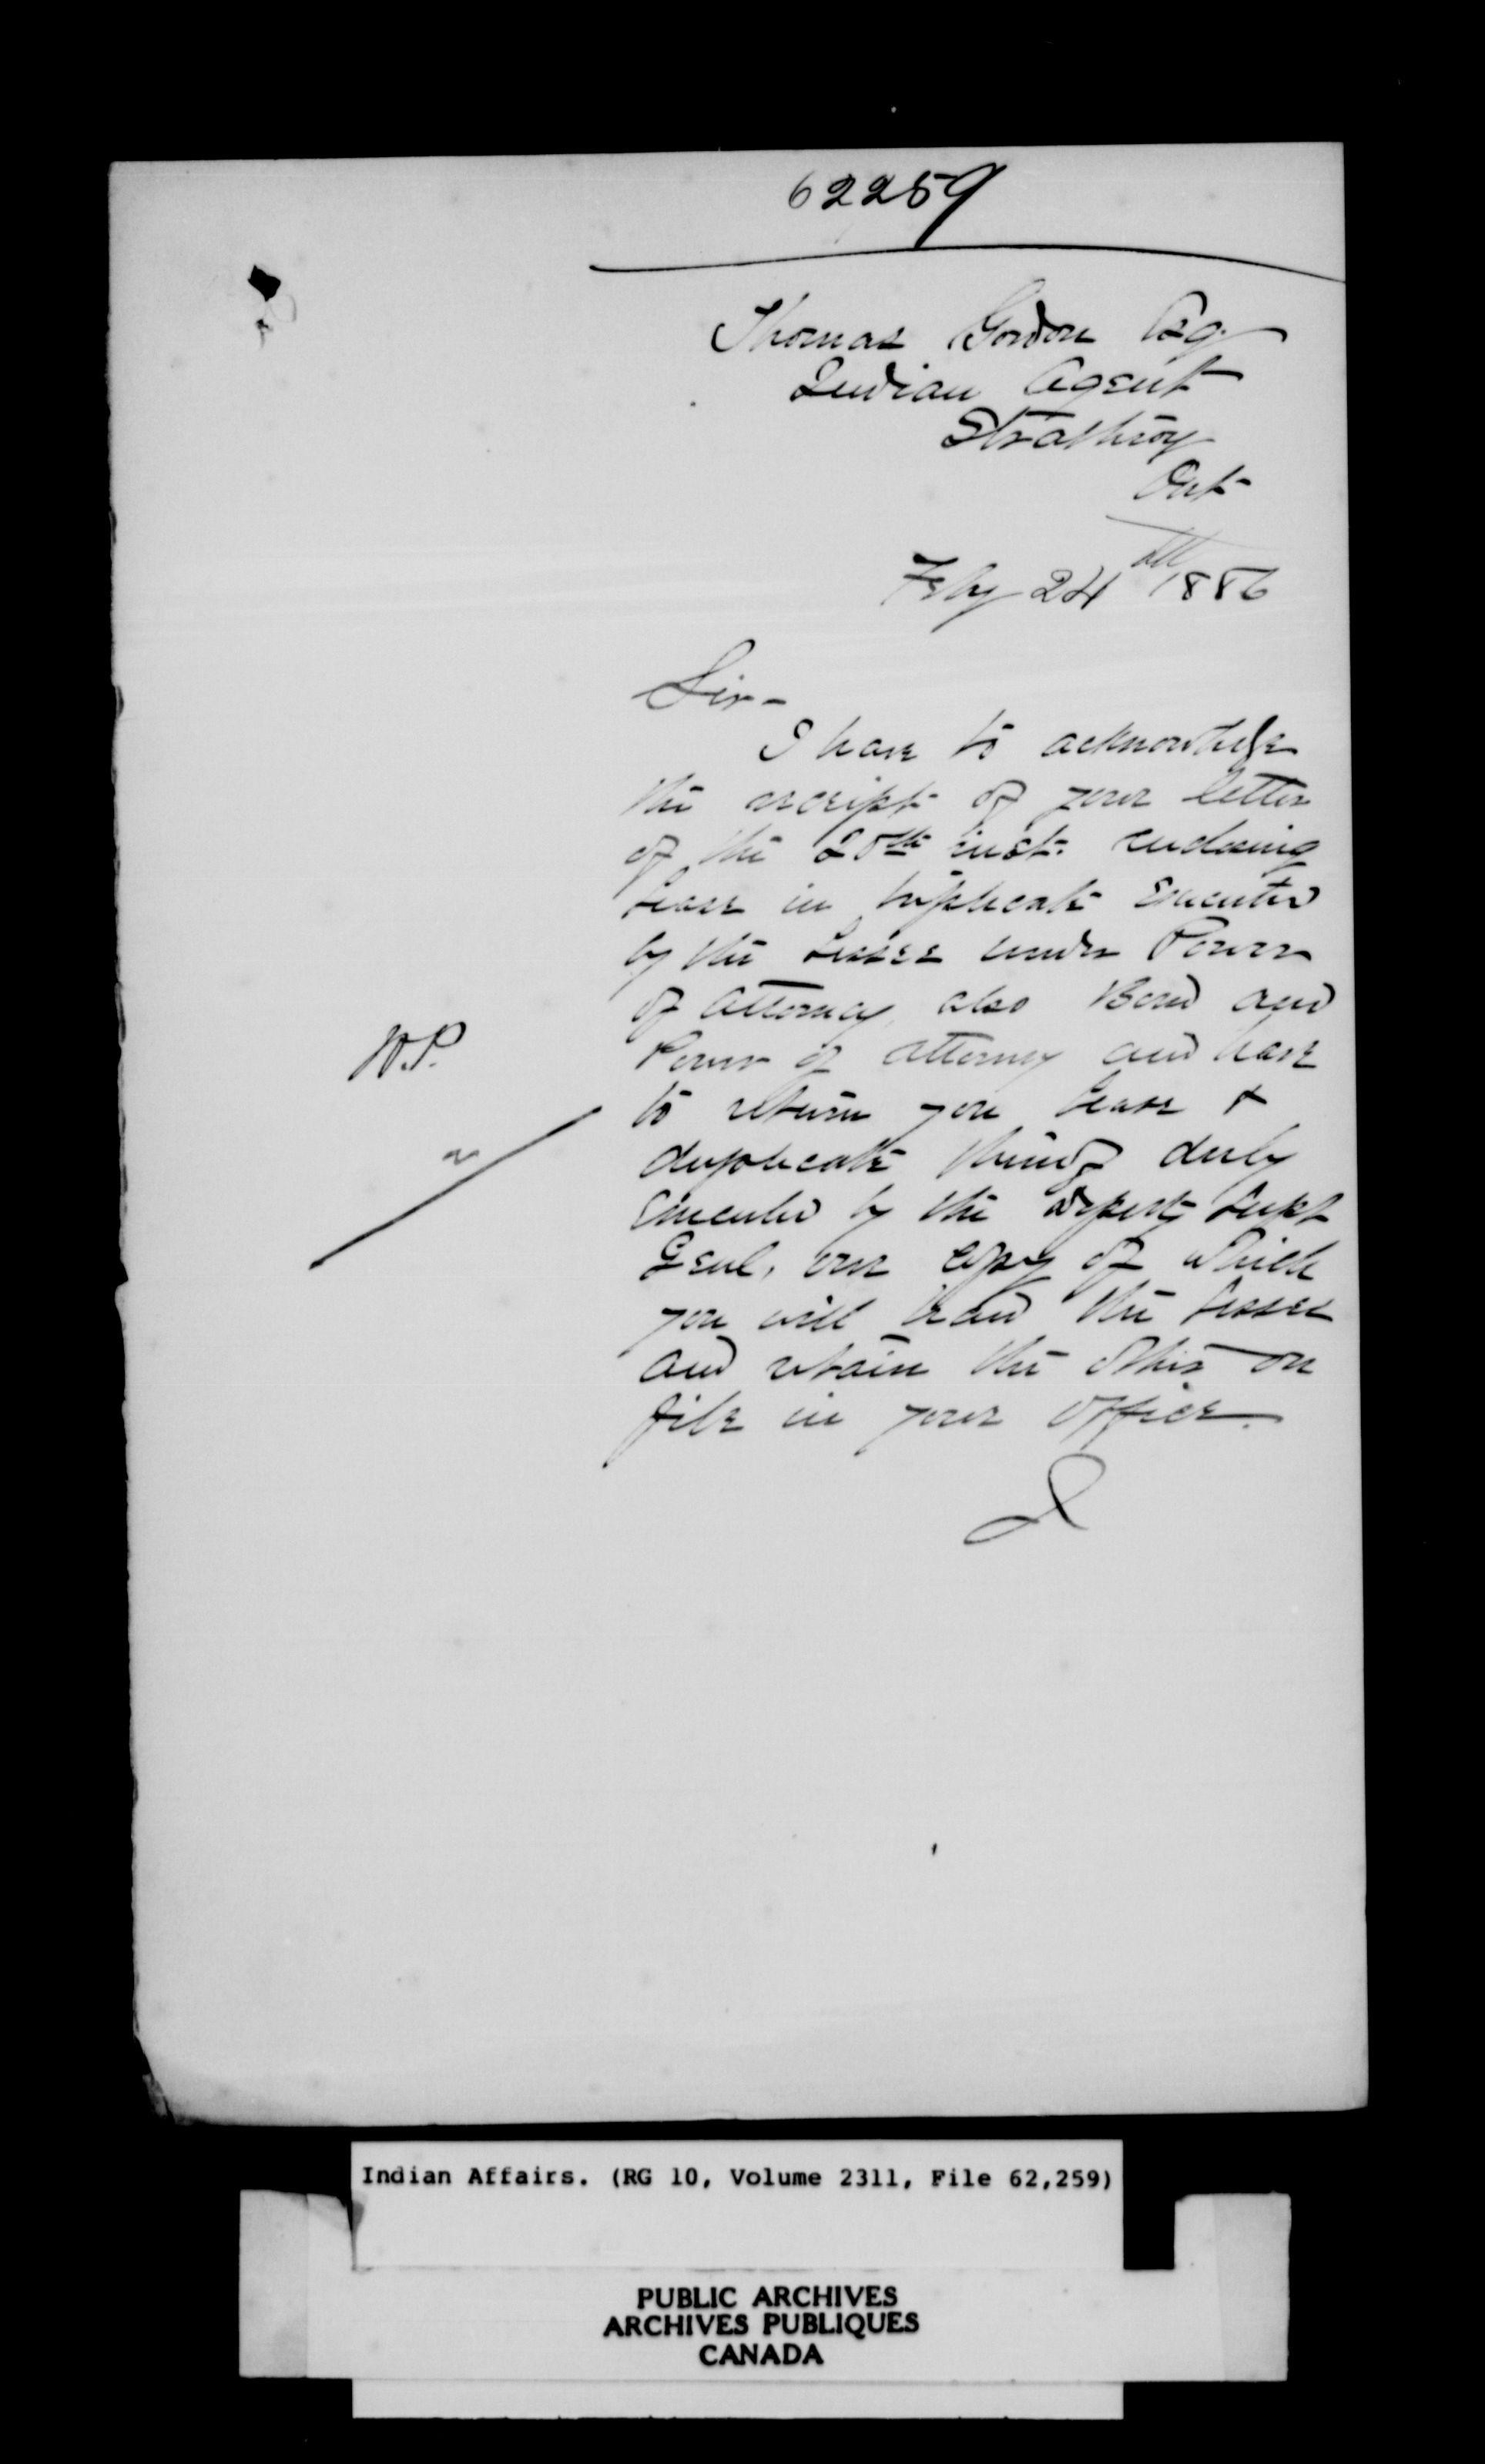 62259
Thomas Gordon Esq.
Indian Agent
Strathroy
Ont
Feby 24th 1886
Sir-
I have to acknowledge
the receipt of your letter
of the 20th inst. enclosing
Lease in triplicate executed
by the Lessee under Power
of Attorney, also Bond and
Power of Attorney and have
to return you Lease &
duplicate thereof duly
executed by the Deputy Supt
Genl, one copy of which
you will hand the Lessee
and retain the other on
file in your office.
W.P.
Indian Affairs. (RG 10, Volume 2311, File 62,259)
PUBLIC ARCHIVES
ARCHIVES PUBLIQUES
CANADA